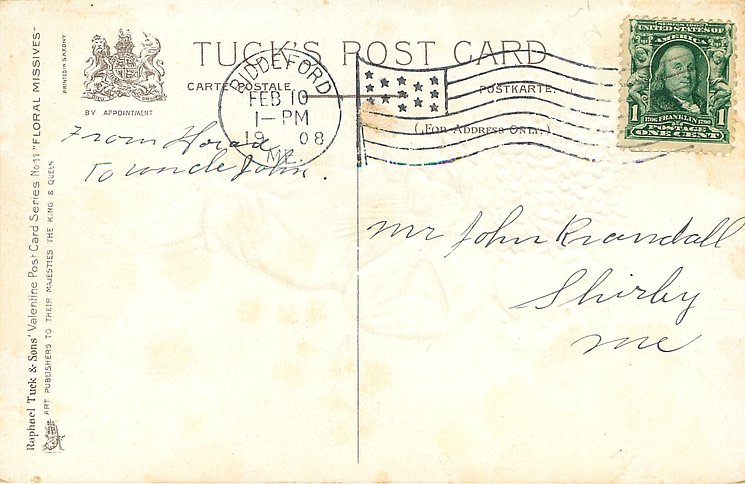 TUCK'S POST CARD
CARTE POSTALE.
POSTKARTE.
(FOR ADDRESS ONLY.)
BY APPOINTMENT
PRINTED IN SAXONY
Raphael Tuck & Sons' Valentine Post Card Series No 11 "FLORAL MISSIVES"
ART PUBLISHERS TO THEIR MAJESTIES THE KING & QUEEN
BIDDEFORD
FEB 10
1-PM
1908
ME.
SERIES 1902
UNITED STATES OF
AMERICA
1706 FRANKLIN 1790
1 POSTAGE 1
ONE CENT
From
To uncle John.
Mr John Crandall
Shirley
Me